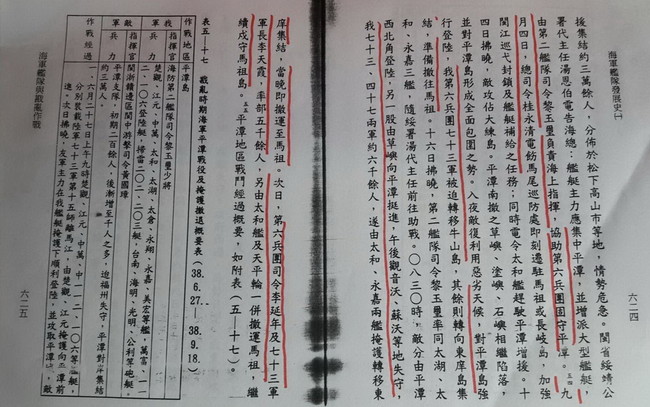 海軍艦隊發展史(一)
六二四
後集結約三萬餘人，分佈於松下高山市等地，情勢危急。閩省綏靖公
署代主任湯恩伯電告海總：艦艇主力應集中平潭，並增派大型艦艇，
由第二艦隊司令黎玉璽負責海上指揮，協助第六兵團固守平潭。五四九
月四日，總司令桂永清電飭馬尾巡防處即刻遷駐馬祖或長岐島，加強
閩江巡弋封鎖及艦艇補給之任務；同時電令太和艦趕駛平潭增援。十
四日拂曉，敵攻佔大練島。平潭南撤之草嶼、塗嶼、石嶼相繼陷落，
並對平潭島形成全面包圍之勢。入夜敵復利用惡劣天候，對平潭島強
行登陸，我第六兵團七十三軍被迫轉移牛山島，其餘則轉向東庠島集
結，準備撤往馬祖。十六日拂曉，第二艦隊司令黎玉璽率同太湖、太
和、永嘉三艦，隨綏署湯代主任前往助戰。〇八三〇時，敵分由平潭
西北角登陸，另一股由草嶼向平潭挺進，午後觀音沃、蘇沃等地失守，
我七十三、四十七兩軍約六千餘人，遂由太和、永嘉兩艦掩護轉移東
庠集結，當晚即撤運至馬祖。次日，第六兵團司令李延年及七十三軍
軍長李天霞，率部五千餘人，另由太和艦及天平輪一併撤運馬祖，繼
續戍守馬祖島。五五平潭地區戰鬥經過概要，如附表（五—十七）。
表五—十七 戡亂時期海軍平潭戰役及掩護撤退概要表（38. 6. 27—38. 9. 18.）
作戰地區 平潭島
我 指揮官 海防第二艦隊司令黎玉璽少將
軍 兵力 楚觀、江元、中萬、太和、太湖、太倉、永翔、永嘉、美宏等艦，萬富、一一
二、一〇六登陸艇，掃雷二〇二、二〇三艇，台南、海明、光明、公利等砲艇。
敵 指揮官 閩浙贛邊區閩中游擊司令黃國璋
軍 兵力 平潭支隊，初期二百餘人，後漸增至千人之多，迨福州失守，平潭對岸集結
約三萬人。
作戰經過 一、六月二十七日上午九時楚觀、江元、中萬、中一一二、一〇六等艦艇，
分別裝載陸軍七十三軍第十五師離馬江，由楚觀、江元掩護向平潭前
進。次日拂曉，友軍主力在我艦艇掩護下順利登陸，並攻取平潭，敵
海軍艦隊與戡亂作戰
六二五